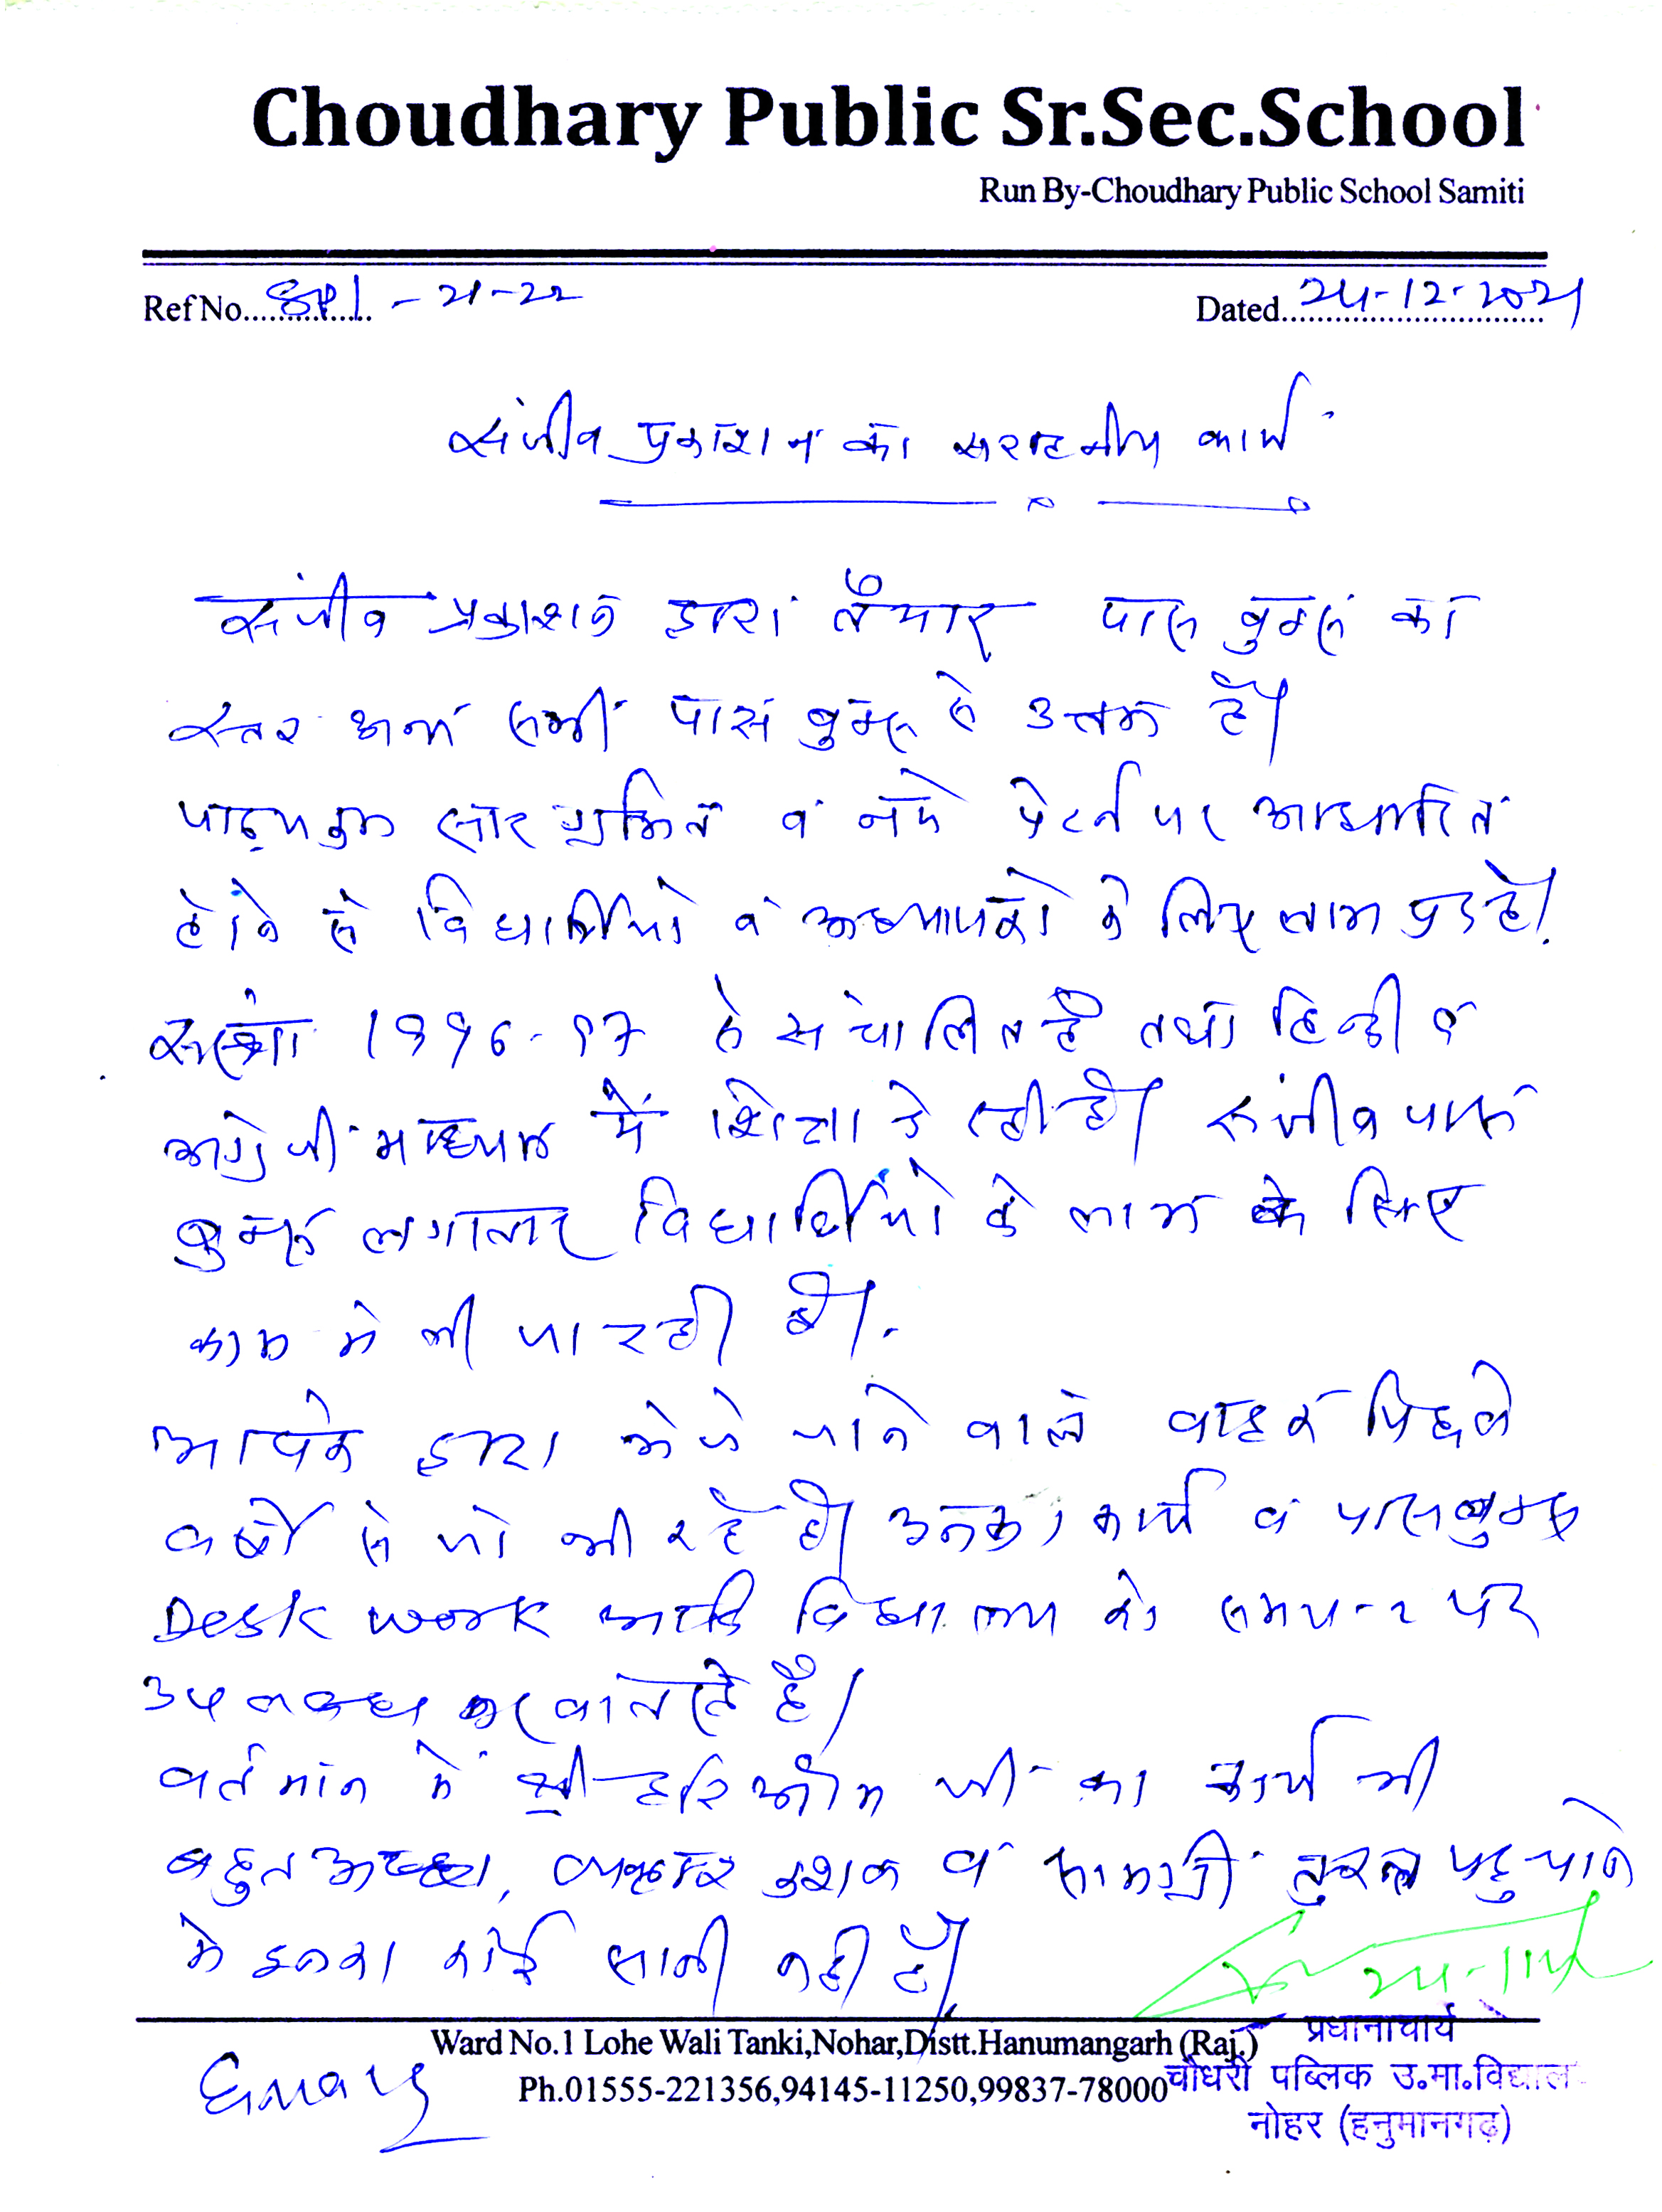 Choudhary Public Sr.Sec.School
Run By-Choudhary Public School Samiti
Ref No. SP1 - 21-22
Dated 24-12-2021
संजीव प्रकाशन का सराहनीय कार्य
संजीव प्रकाशन द्वारा तैयार पास बुक्स का
स्तर अन्य सभी पास बुक्स से उत्तम है।
पाठ्यक्रम सार गर्भित व नये पेटर्न पर आधारित
होने से विद्यार्थियों व अध्यापकों के लिए लाभ प्रद है।
संस्था 1996-97 से संचालित है तथा हिन्दी व
अंग्रेजी माध्यम में शिक्षा दे रही है। संजीव पास
बुक्स लगातार विद्यार्थियों के लाभ के लिए
काम में ली जा रही है।
आपके द्वारा भेजे जाने वाले वाहक पिछले
वर्षों से जो भी रहे है। उनका कार्य व पासबुक्स
Desk work आदि विद्यालय को समय-2 पर
उपलब्ध करवाते रहे हैं।
वर्तमान में श्री हरिओम जी का कार्य भी
बहुत अच्छा, व्यवहार कुशल व सामग्री तुरन्त पहुचाने
में इनका कोई सानी नहीं है।
Ward No.1 Lohe Wali Tanki,Nohar,Distt.Hanumangarh (Raj.)
Ph.01555-221356,94145-11250,99837-78000
प्रधानाचार्य
चौधरी पब्लिक उ.मा.विद्याल
नोहर (हनुमानगढ़)